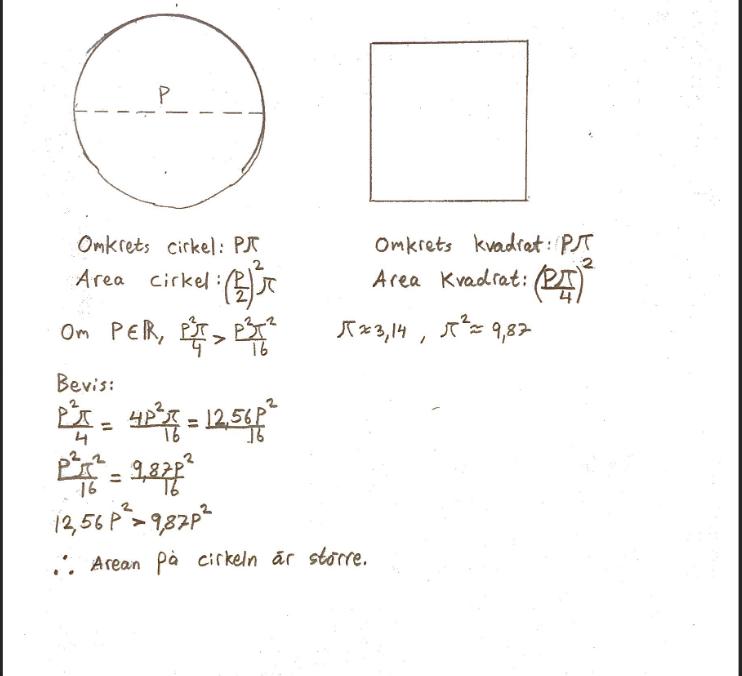 P
Omkrets cirkel: Pπ
Area cirkel: (P/2)²π
Omkrets kvadrat: Pπ
Area Kvadrat: (Pπ/4)²
Om P∈ℝ, P²π/4 > P²π²/16
π≈3,14 , π²≈ 9,87
Bevis:
P²π/4 = 4P²π/16 = 12,56P²/16
P²π²/16 = 9,87P²/16
12,56P² > 9,87P²
∴ Arean på cirkeln är större.